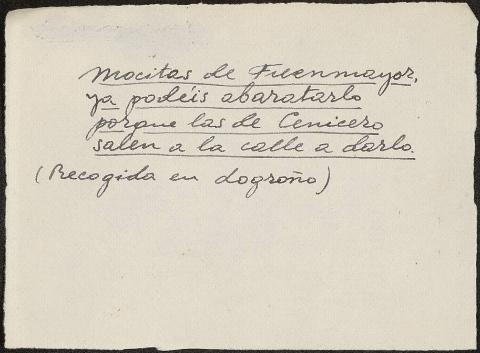 Mocitas de Fuenmayor,
ya podéis abaratarlo
porque las de Cenicero
salen a la calle a darlo.
(Recogida en Logroño)